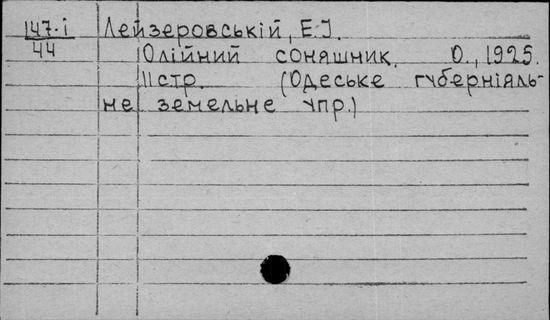 147.і Лейзеровській, Е.І.
44 Олійний соняшник. О., 1925.
11 стр. (Одеське губерніяль-
не земельне упр.)